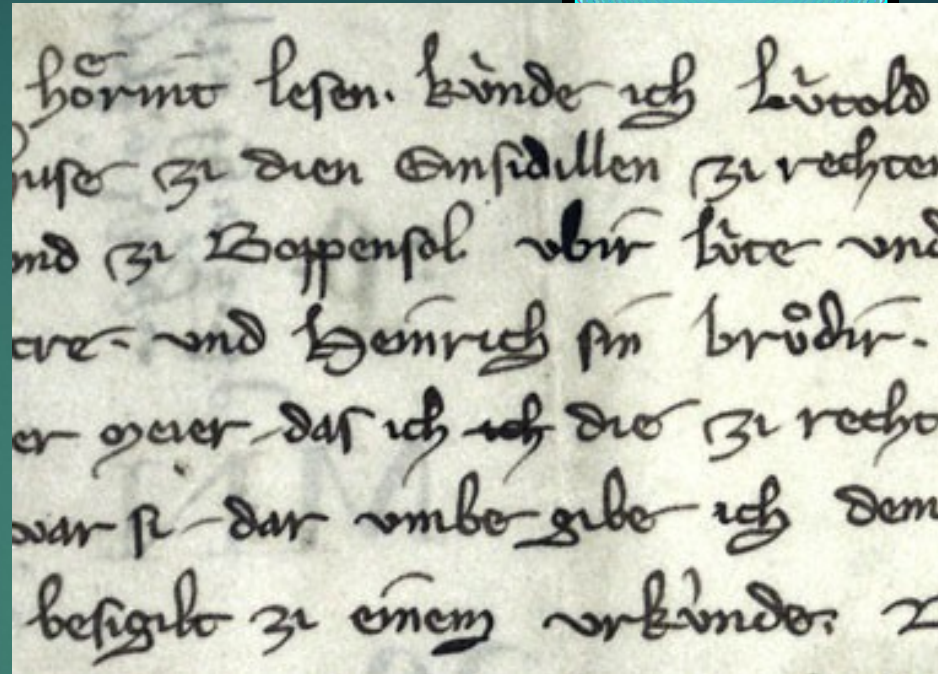 hoͤrint lesen. kv̀nde ich Lv̀told
huse zi dien Einsidillen zi rechten
und zi Boppensol vbir lv̀te vnd
vnd Heinrich sin brůdir.
er meier das ich ich die zi recht
war si dar vmbe gibe ich dem
besigilt zi einem vrkv̀nde.